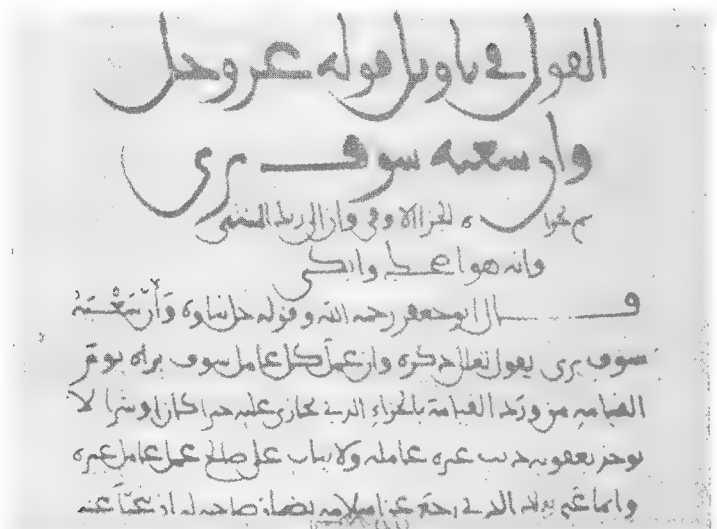 القول في تاويل قوله عز وجل
وان سعيه سوف يرى
ثم يجزاه الجزا الاوفى وان الى ربك المنتهى
وانه هو اضحك وابكى
قال ابو جعفر رحمه الله وقوله جل ثناوه وَأَنَّ سَعْيَهُ
سوف يرى يقول تعالى ذكره وان عمل كل عامل سوف يراه يوم
القيامه من ورد القيامة بالجزاء الذي يجازى عليه خيرا كان او شرا لا
يوخذ بعقوبه ذنب غيره عامله ولا يثاب على صالح عمل عامل غيره
وانما عنى بذلك الذي رجع عن اسلامه بضمان صاحبه له ان يتحمل عنه